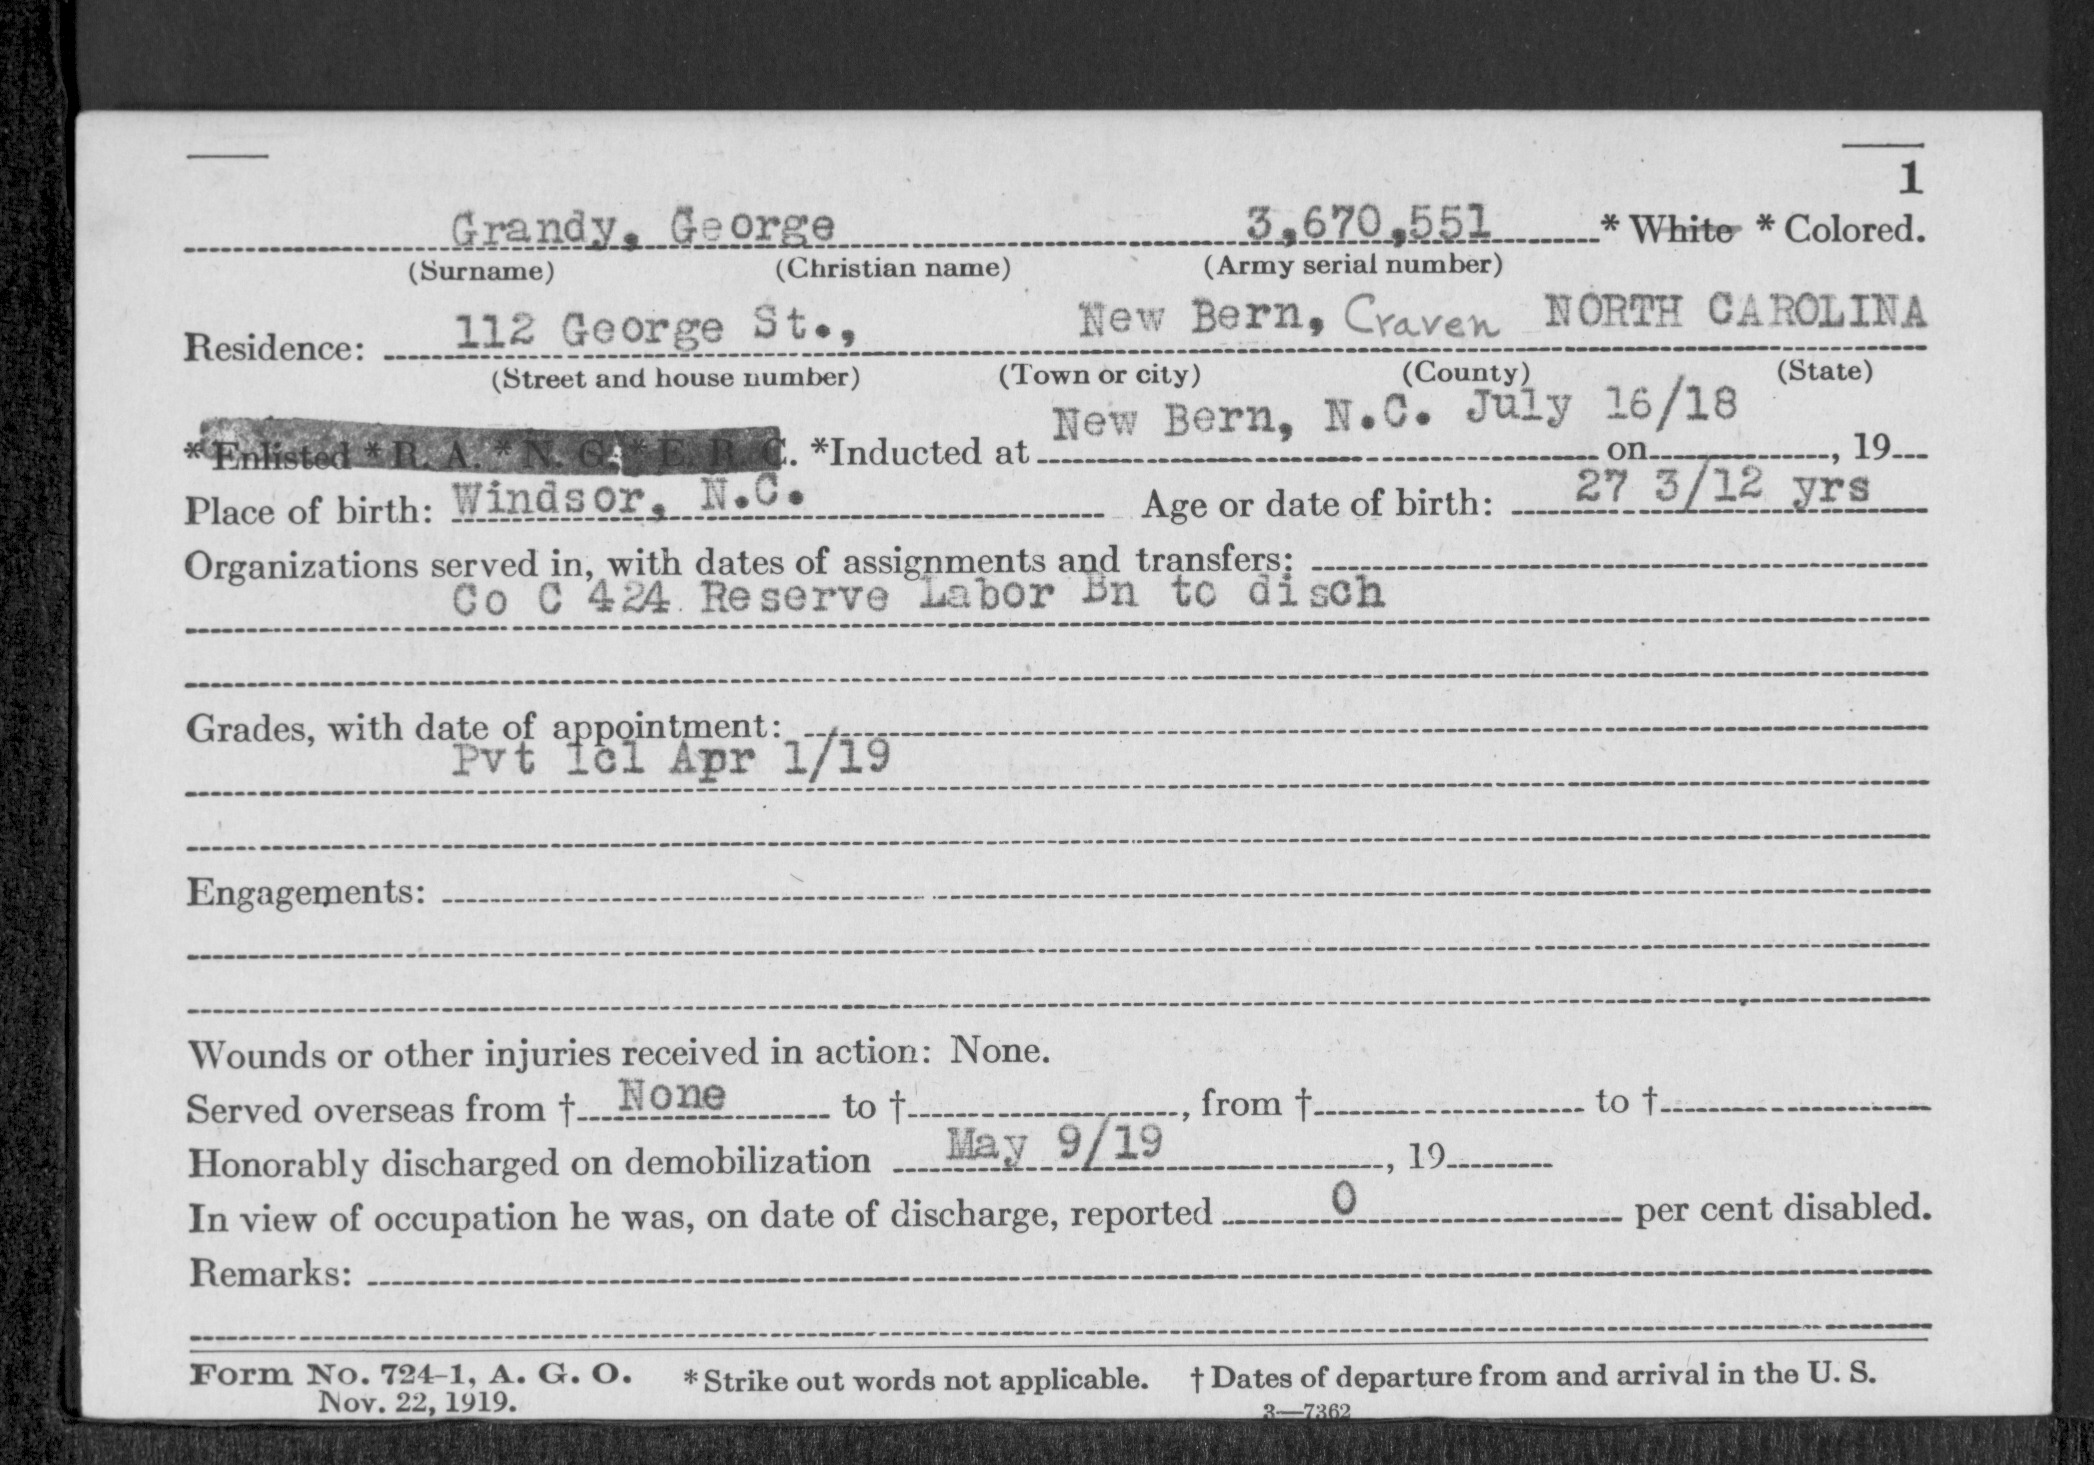 1
Grandy, George 3,670,551 * White * Colored.
(Surname) (Christian name) (Army serial number)
Residence: 112 George St., New Bern, Craven NORTH CAROLINA
(Street and house number) (Town or city) (County) (State)
*Enlisted *R. A. *N. G. *E. R. C. *Inducted at New Bern, N.C. July 16/18 on , 19
Place of birth: Windsor, N.C. Age or date of birth: 27 3/12 yrs
Organizations served in, with dates of assignments and transfers:
Co C 424 Reserve Labor Bn to disch
Grades, with date of appointment:
Pvt 1cl Apr 1/19
Engagements:
Wounds or other injuries received in action: None.
Served overseas from † None to † , from † to †
Honorably discharged on demobilization May 9/19 , 19
In view of occupation he was, on date of discharge, reported 0 per cent disabled.
Remarks:
Form No. 724-1, A. G. O. * Strike out words not applicable. † Dates of departure from and arrival in the U. S.
Nov. 22, 1919. 3—7362